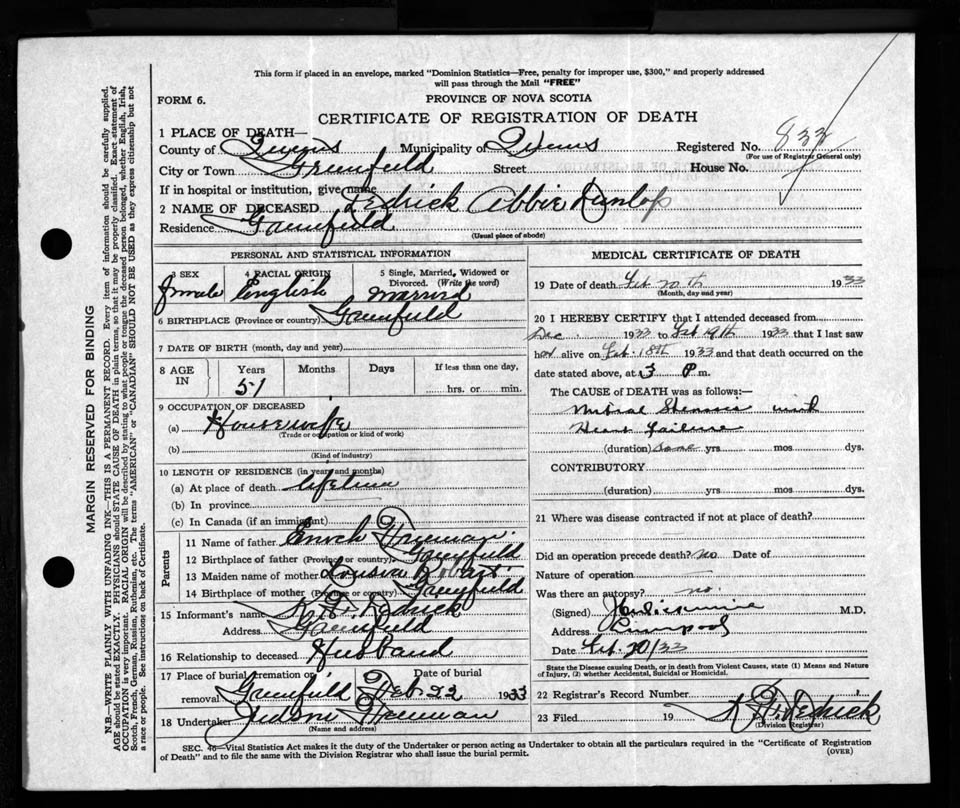 This form if placed in an envelope, marked "Dominion Statistics—Free, penalty for improper use, $300," and properly addressed
will pass through the Mail "FREE"
FORM 6.
PROVINCE OF NOVA SCOTIA
CERTIFICATE OF REGISTRATION OF DEATH
1 PLACE OF DEATH—
County of Queens Municipality of Queens Registered No. 833
(For use of Registrar General only)
City or Town Greenfield Street House No.
If in hospital or institution, give name
2 NAME OF DECEASED Redrick Abbie Dunlop
Residence Greenfield
(Usual place of abode)
PERSONAL AND STATISTICAL INFORMATION
3 SEX 4 RACIAL ORIGIN 5 Single, Married, Widowed or
Divorced. (Write the word)
female English Married
6 BIRTHPLACE (Province or country) Greenfield
7 DATE OF BIRTH (month, day and year)
8 AGE IN Years Months Days If less than one day,
51 hrs. or min.
9 OCCUPATION OF DECEASED
(a) Housewife
(Trade or occupation or kind of work)
(b)
(Kind of industry)
10 LENGTH OF RESIDENCE (in years and months)
(a) At place of death lifetime
(b) In province
(c) In Canada (if an immigrant)
Parents
11 Name of father Enoch Freeman
12 Birthplace of father (Province or country) Greenfield
13 Maiden name of mother
14 Birthplace of mother (Province or country) Greenfield
15 Informant's name Redrick
Address Greenfield
16 Relationship to deceased Husband
17 Place of burial, cremation or removal Date of burial
Greenfield Feb 22 1933
18 Undertaker Judson Freeman
(Name and address)
MEDICAL CERTIFICATE OF DEATH
19 Date of death Feb 20th 1933
(Month, day and year)
20 I HEREBY CERTIFY that I attended deceased from
Dec 1933 to Feb 19th 1933 that I last saw
her alive on Feb. 18th 1933 and that death occurred on
date stated above, at 3 P m.
The CAUSE of DEATH was as follows:—
Mitral Stenosis with
Heart Failure
(duration) some yrs mos dys.
CONTRIBUTORY
(duration) yrs mos dys.
21 Where was disease contracted if not at place of death?
Did an operation precede death? no Date of
Nature of operation
Was there an autopsy? no.
(Signed) M.D.
Address Liverpool
Date Feb. 20/33
State the Disease causing Death, or in death from Violent Causes, state (1) Means and Nature
of Injury, (2) whether Accidental, Suicidal or Homicidal.
22 Registrar's Record Number
23 Filed 19 Redrick
(Division Registrar)
SEC. 46—Vital Statistics Act makes it the duty of the Undertaker or person acting as Undertaker to obtain all the particulars required in the "Certificate of Registration
of Death" and to file the same with the Division Registrar who shall issue the burial permit.
(OVER)
MARGIN RESERVED FOR BINDING
N.B.—WRITE PLAINLY WITH UNFADING INK—THIS IS A PERMANENT RECORD. Every item of information should be carefully supplied.
AGE should be stated EXACTLY. PHYSICIANS should STATE CAUSE OF DEATH in plain terms, so that it may be properly classified. Exact statement of
OCCUPATION is very important. RACIAL ORIGIN will be described by stating to what people or tongue the deceased person belonged, whether English, Irish,
Scotch, French, German, Russian, Ruthenian, etc. The terms "AMERICAN" or "CANADIAN" SHOULD NOT BE USED as they express citizenship but not
a race or people. See instructions on back of Certificate.